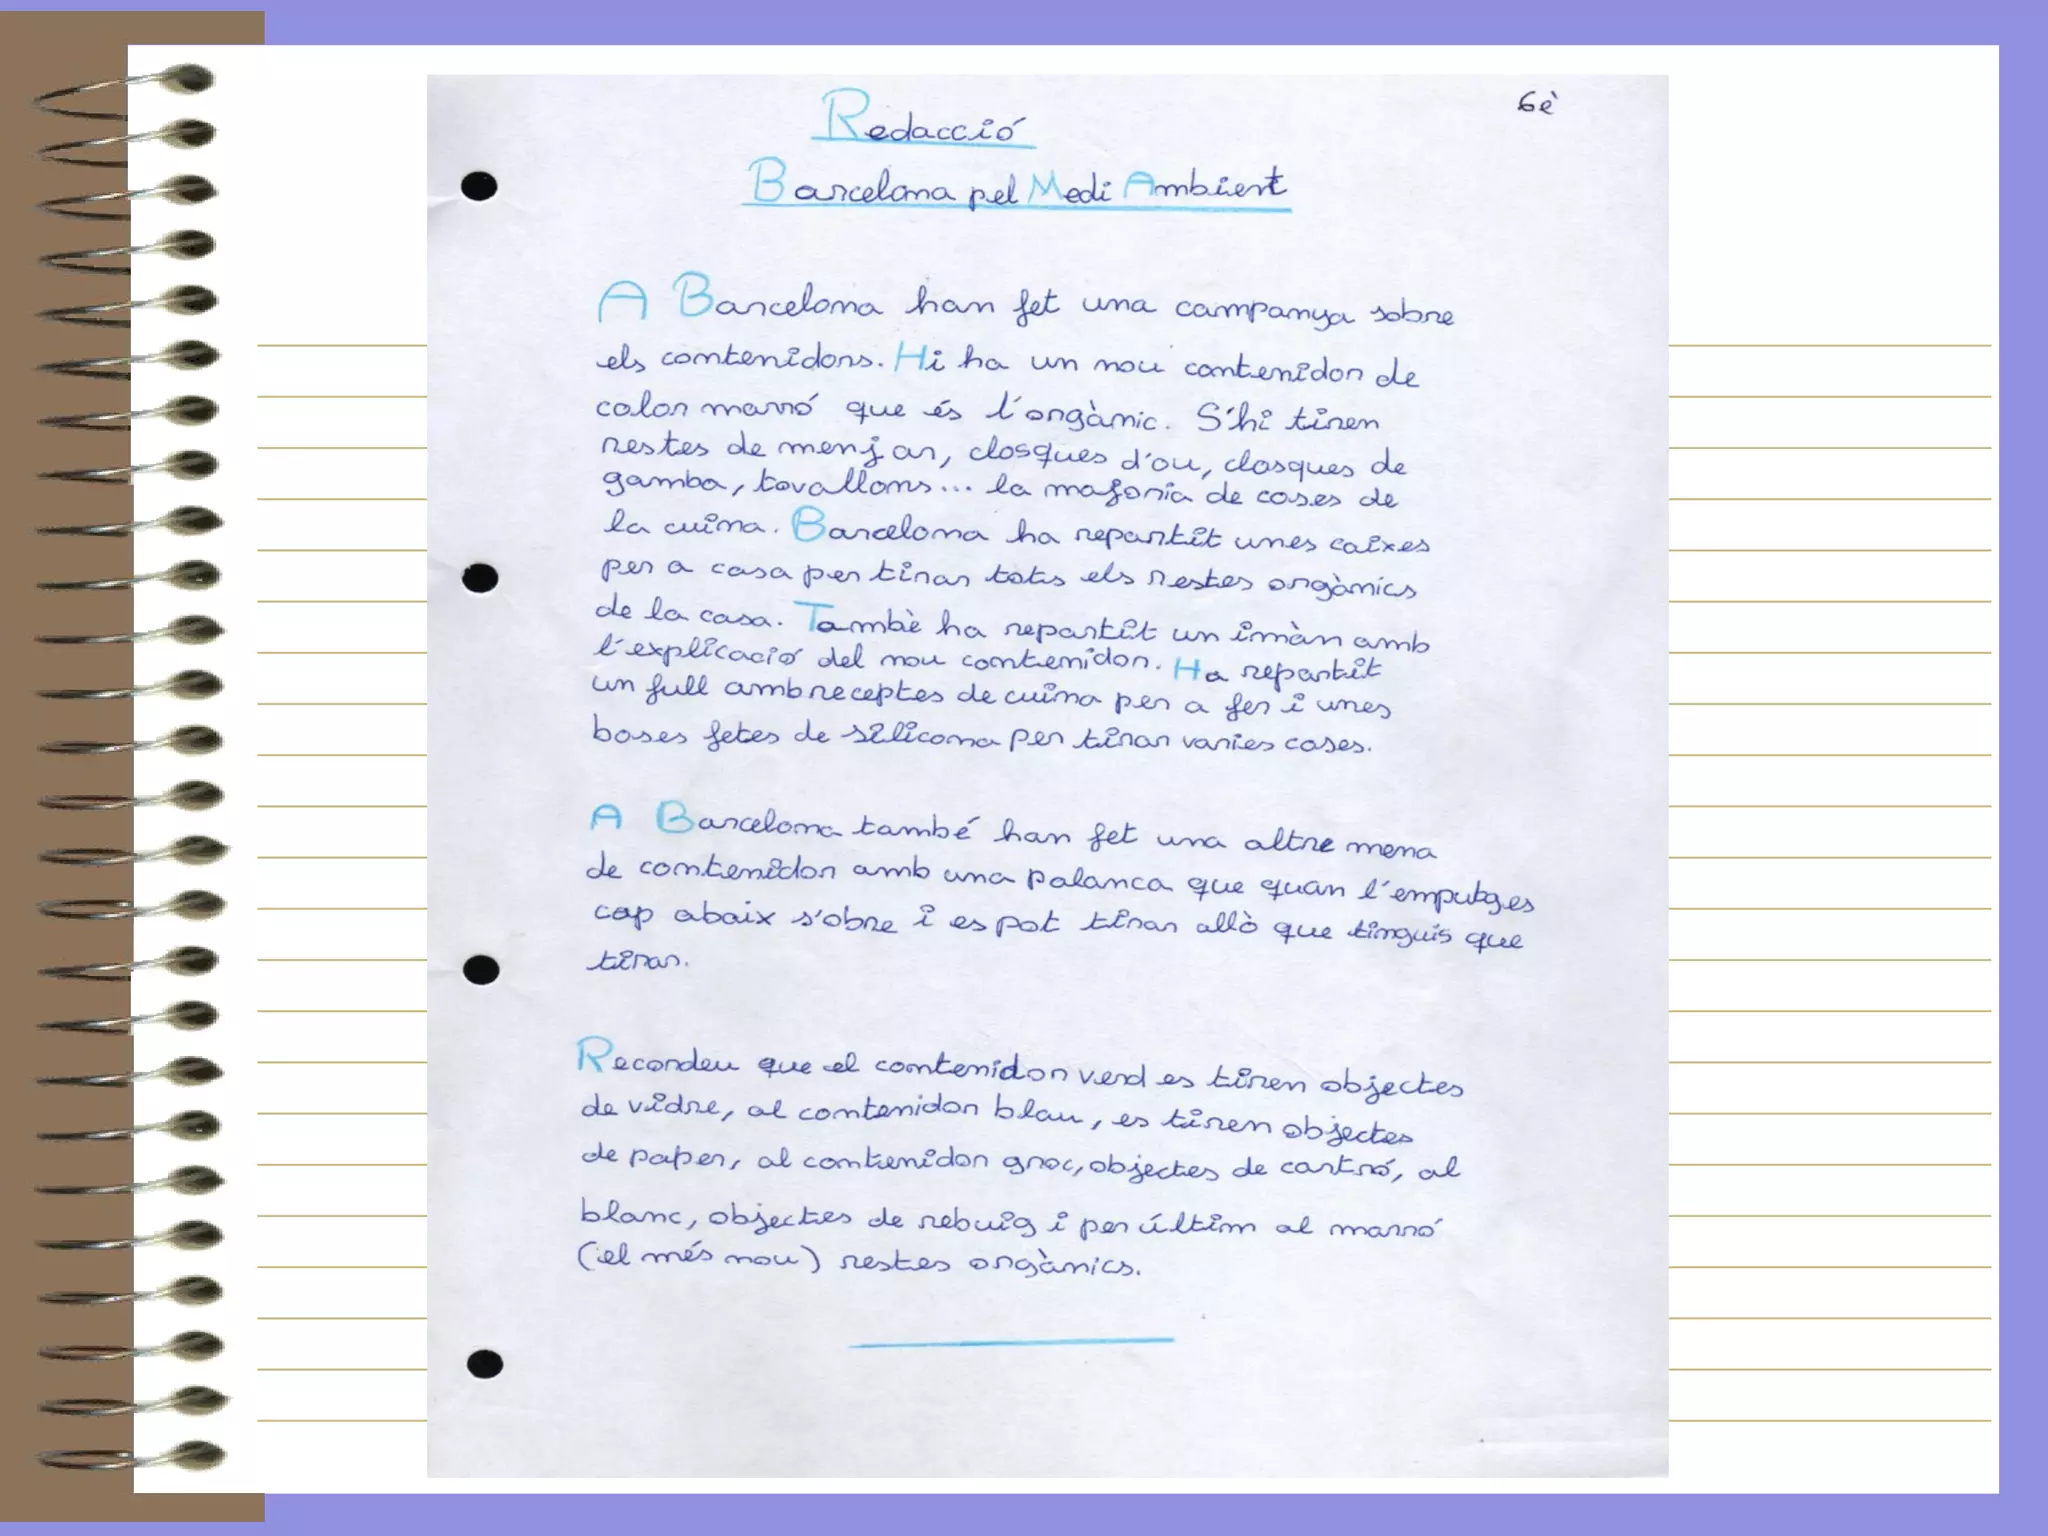 6è
Redacció
Barcelona pel Medi Ambient
A Barcelona han fet una campanya sobre
els contenidors. Hi ha un nou contenidor de
color marró que és l'orgànic. S'hi tiren
restes de menjar, closques d'ou, closques de
gamba, tovallons... la majoria de coses de
la cuina. Barcelona ha repartit unes caixes
per a casa per tirar tots els restes orgànics
de la casa. Tambè ha repartit un imàn amb
l'explicació del nou contenidor. Ha repartit
un full amb receptes de cuina per a fer i unes
boses fetes de silicona per tirar varies coses.
A Barcelona també han fet una altre mena
de contenidor amb una palanca que quan l'emputges
cap abaix s'obre i es pot tirar allò que tinguis que
tirar.
Recordeu que el contenidor verd es tiren objectes
de vidre, al contenidor blau, es tiren objectes
de paper, al contenidor groc, objectes de cartró, al
blanc, objectes de rebuig i per últim al marró
(el més nou) restes orgànics.